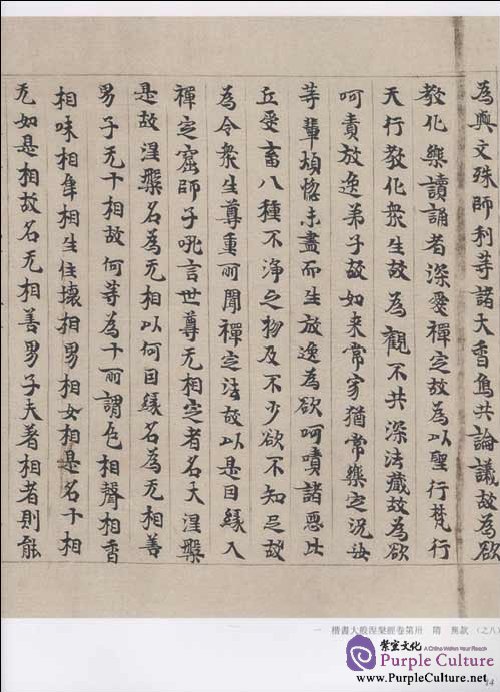 為與文殊師利等諸大香象共論議故為欲
教化樂讀誦者深愛禪定故為以聖行梵行
天行教化衆生故為觀不共深法藏故為欲
呵責放逸弟子故如来常寂猶常樂定況汝
等輩煩惱未盡而生放逸為欲呵嘖諸惡比
丘受畜八種不淨之物及不少欲不知足故
為令衆生尊重所聞禪定法故以是因緣入
禪定窟師子吼言世尊无相定者名大涅槃
是故涅槃名為无相以何因緣名為无相善
男子无十相故何等為十所謂色相聲相香
相味相觸相生住壞相男相女相是名十相
无如是相故名无相善男子夫著相者則能
一 楷書大般涅槃經卷第卅 隋 無款 (之八)
紫室文化 A China Within Your Reach
Purple Culture
www.PurpleCulture.net
14